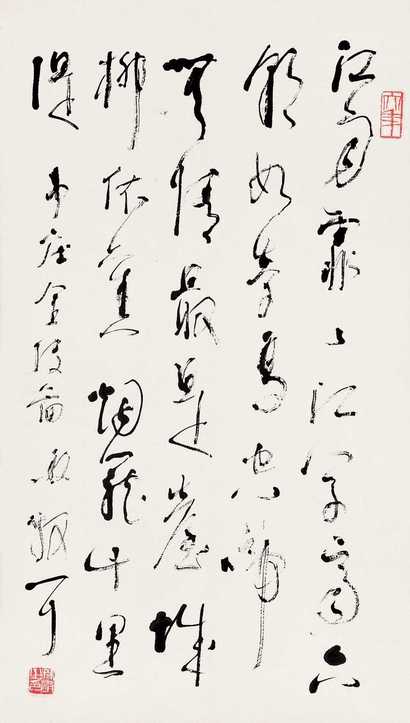 江雨霏〻江草齊六
朝如夢鳥空啼
無情最是臺城
柳依舊煙籠十里
堤 韋莊金陵圖